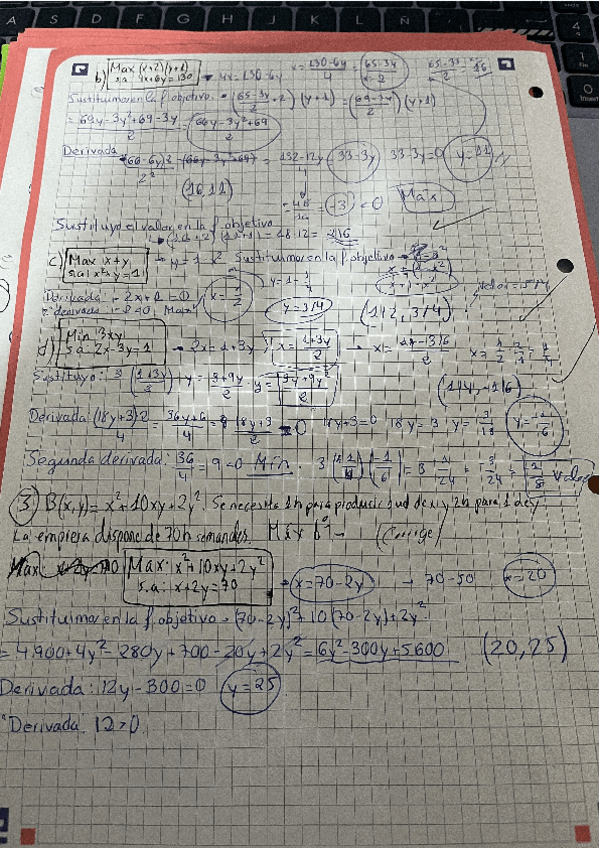 b) Max (x+2)(y+1) s.a: 4x+6y=130 → 4x=130-6y x=130-6y/4 = 65-3y/2 65-33/2 = 16
Sustituimos en la f. objetivo → (65-3y/2 + 2)(y+1) = (69-3y/2)(y+1)
= 69y-3y²+69-3y/2 = 66y-3y²+69/2
Derivada (66-6y)2/2² = 132-12y/4 33-3y 33-3y=0 y=11
(16,11) -3 < 0 Max
Sustituyo el valor en la f. objetivo
(16+2)(11+1) = 18·12 = 216
c) Max x+y s.a: x²+y=1 → y=1-x² Sustituimos en la f. objetivo
Derivada: -2x+1=0 x=1/2 y=1-1/4 y=3/4 (1/2, 3/4) Valor = 5/4
2ª derivada: -2<0, Max
d) Min 3xy s.a: 2x-3y=1 → 2x=1+3y x=1+3y/2
Sustituyo: 3(1+3y/2)·y = 3+9y/2·y = 3y+9y²/2 (1/4, -1/6)
Derivada: (18y+3)2/4 = 36y+6/4 = 18y+3/2 = 0 18y+3=0 18y=-3 y=-3/18 y=-1/6
Segunda derivada: 36/4 = 9>0 Min. 3(1/4)(-1/6) = 3·-1/24 = -3/24 = -1/8 Valor
3 B(x,y)= x²+10xy+2y². Se necesita 1h para producir 1 ud de x y 2h para 1 de y
La empresa dispone de 70h semanales. Máx Bº (Corrige)
Max: x²+10xy+2y² s.a: x+2y=70 → x=70-2y → 70-50 x=20
Sustituimos en la f. objetivo → (70-2y)²+10(70-2y)+2y²
= 4.900+4y²-280y+700-20y+2y² = 6y²-300y+5.600 (20,25)
Derivada: 12y-300=0 y=25
2ª Derivada. 12>0